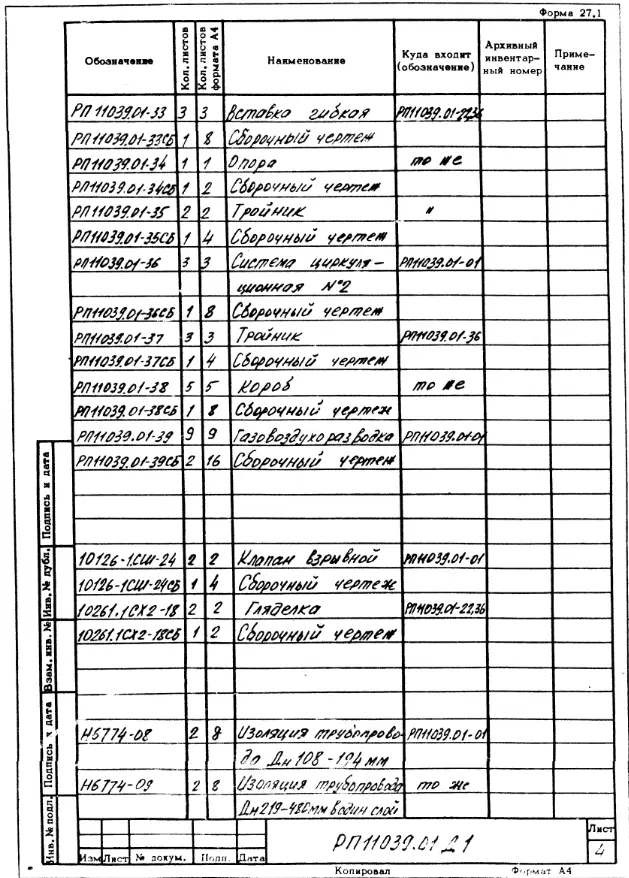 Форма 27.1
Обозначение Кол. листов Кол. листов формата А4 Наименование Куда входит (обозначение) Архивный инвентарный номер Примечание
РП11039.01-33 3 3 Вставка гибкая РП11039.01-22,36
РП11039.01-33СБ 1 8 Сборочный чертеж
РП11039.01-34 1 1 Опора то же
РП11039.01-34СБ 1 2 Сборочный чертеж
РП11039.01-35 2 2 Тройник "
РП11039.01-35СБ 1 4 Сборочный чертеж
РП11039.01-36 3 3 Система циркуля- РП11039.01-01
ционная №2
РП11039.01-36СБ 1 8 Сборочный чертеж
РП11039.01-37 3 3 Тройник РП11039.01-36
РП11039.01-37СБ 1 4 Сборочный чертеж
РП11039.01-38 5 5 Короб то же
РП11039.01-38СБ 1 8 Сборочный чертеж
РП11039.01-39 9 9 Газовоздухоразводка РП11039.01-01
РП11039.01-39СБ 2 16 Сборочный чертеж
10126-1.СШ-24 2 2 Клапан взрывной РП11039.01-01
10126-1СШ-24СБ 1 4 Сборочный чертеж
10261.1СХ2-18 2 2 Гляделка РП11039.01-22,36
10261.1СХ2-18СБ 1 2 Сборочный чертеж
Н6774-08 2 8 Изоляция трубопрово- РП11039.01-01
да Дн108-194мм
Н6774-09 2 8 Изоляция трубопровода то же
Дн219-480мм в один слой
Подпись и дата
Инв. № дубл.
Взам. инв. №
Подпись и дата
Инв. № подл.
Изм Лист № докум. Подп. Дата
РП11039.01 Д1
Лист
4
Копировал Формат А4